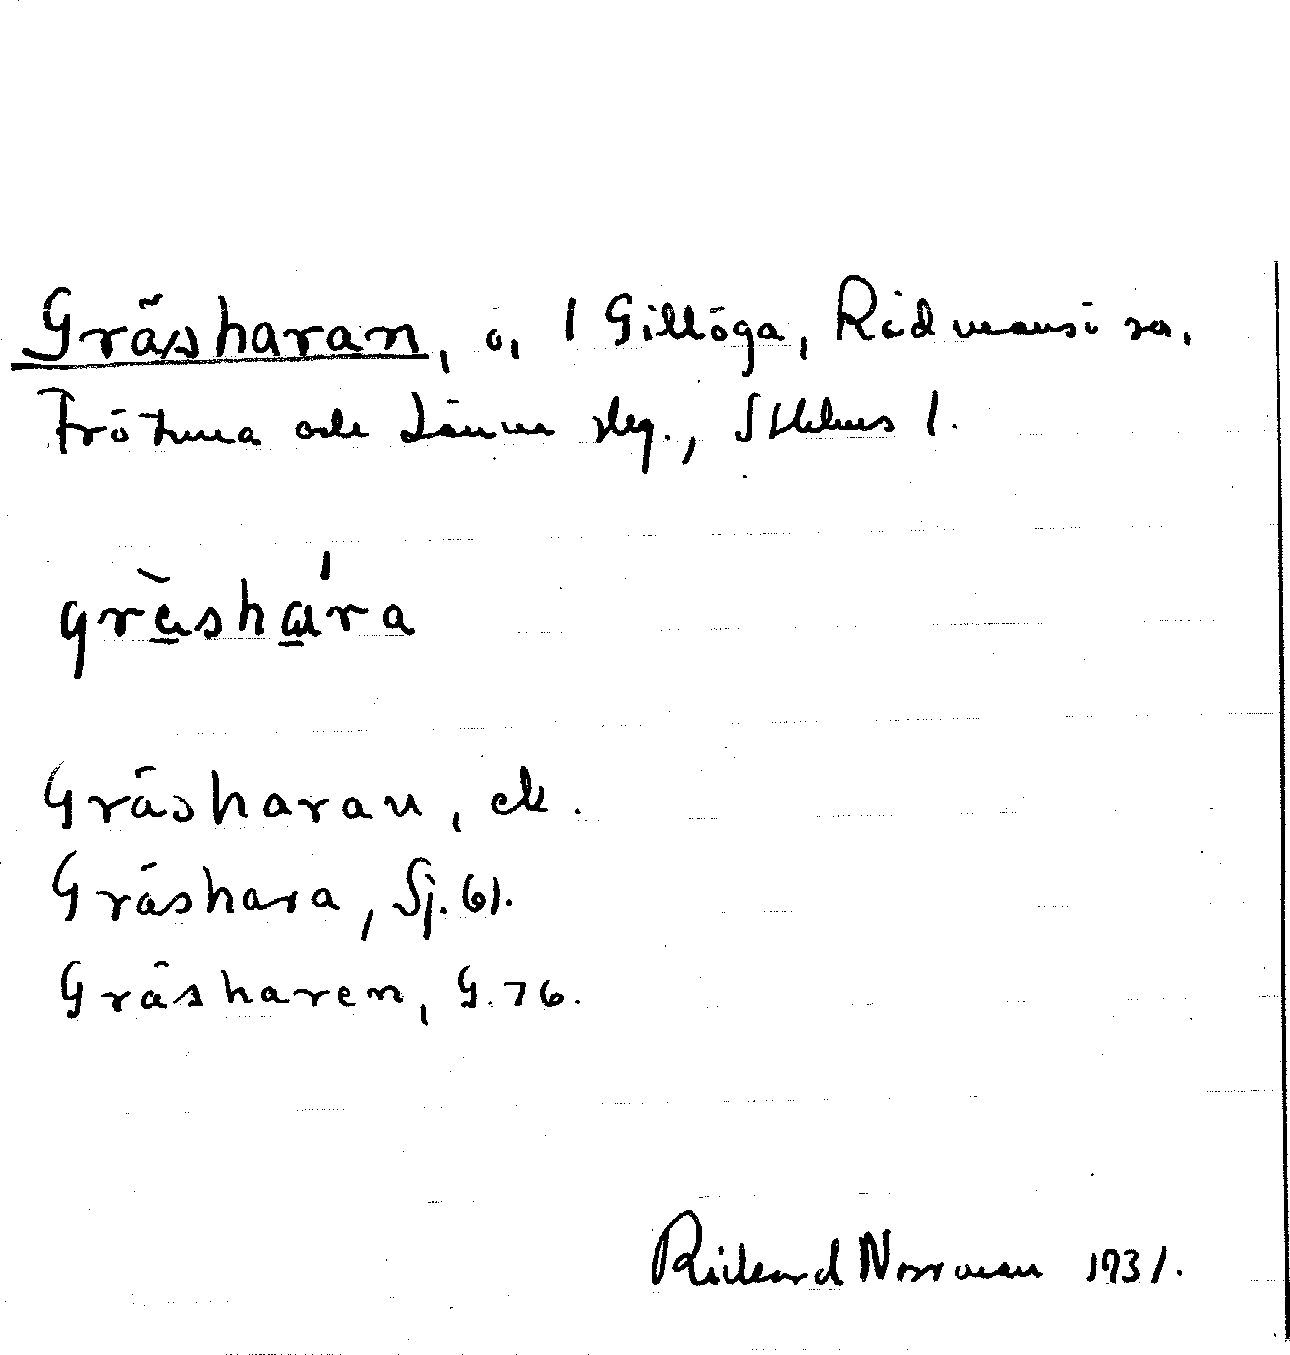 Gräsharan, ö, i Gillöga, Rådmansö sn,
Frötuna och Länna skg., Sthlms l.
gräshára
Gräsharan, ek.
Gräshara, Sj. 61.
Gräsharen, G. 76.
Rickard Norrman 1931.